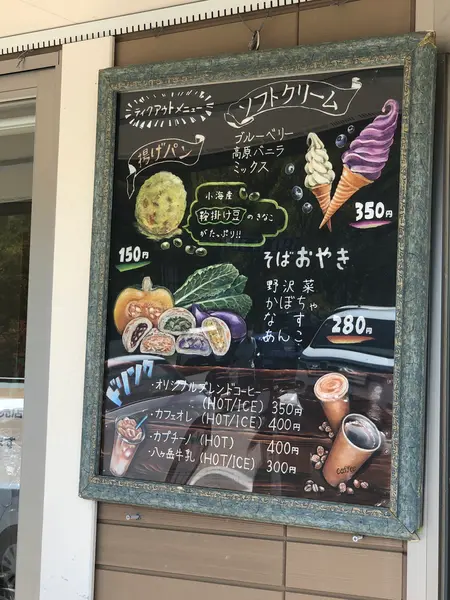 テイクアウトメニュー
ソフトクリーム
ブルーベリー
高原バニラ
ミックス
350円
揚げパン
小海産
鞍掛け豆のきなこ
がたっぷり!!
150円
そばおやき
野沢菜
かぼちゃ
なす
あんこ
280円
ドリンク
・オリジナルブレンドコーヒー
(HOT/ICE) 350円
・カフェオレ (HOT/ICE) 400円
・カプチーノ (HOT) 400円
・八ヶ岳牛乳 (HOT/ICE) 300円
coffee